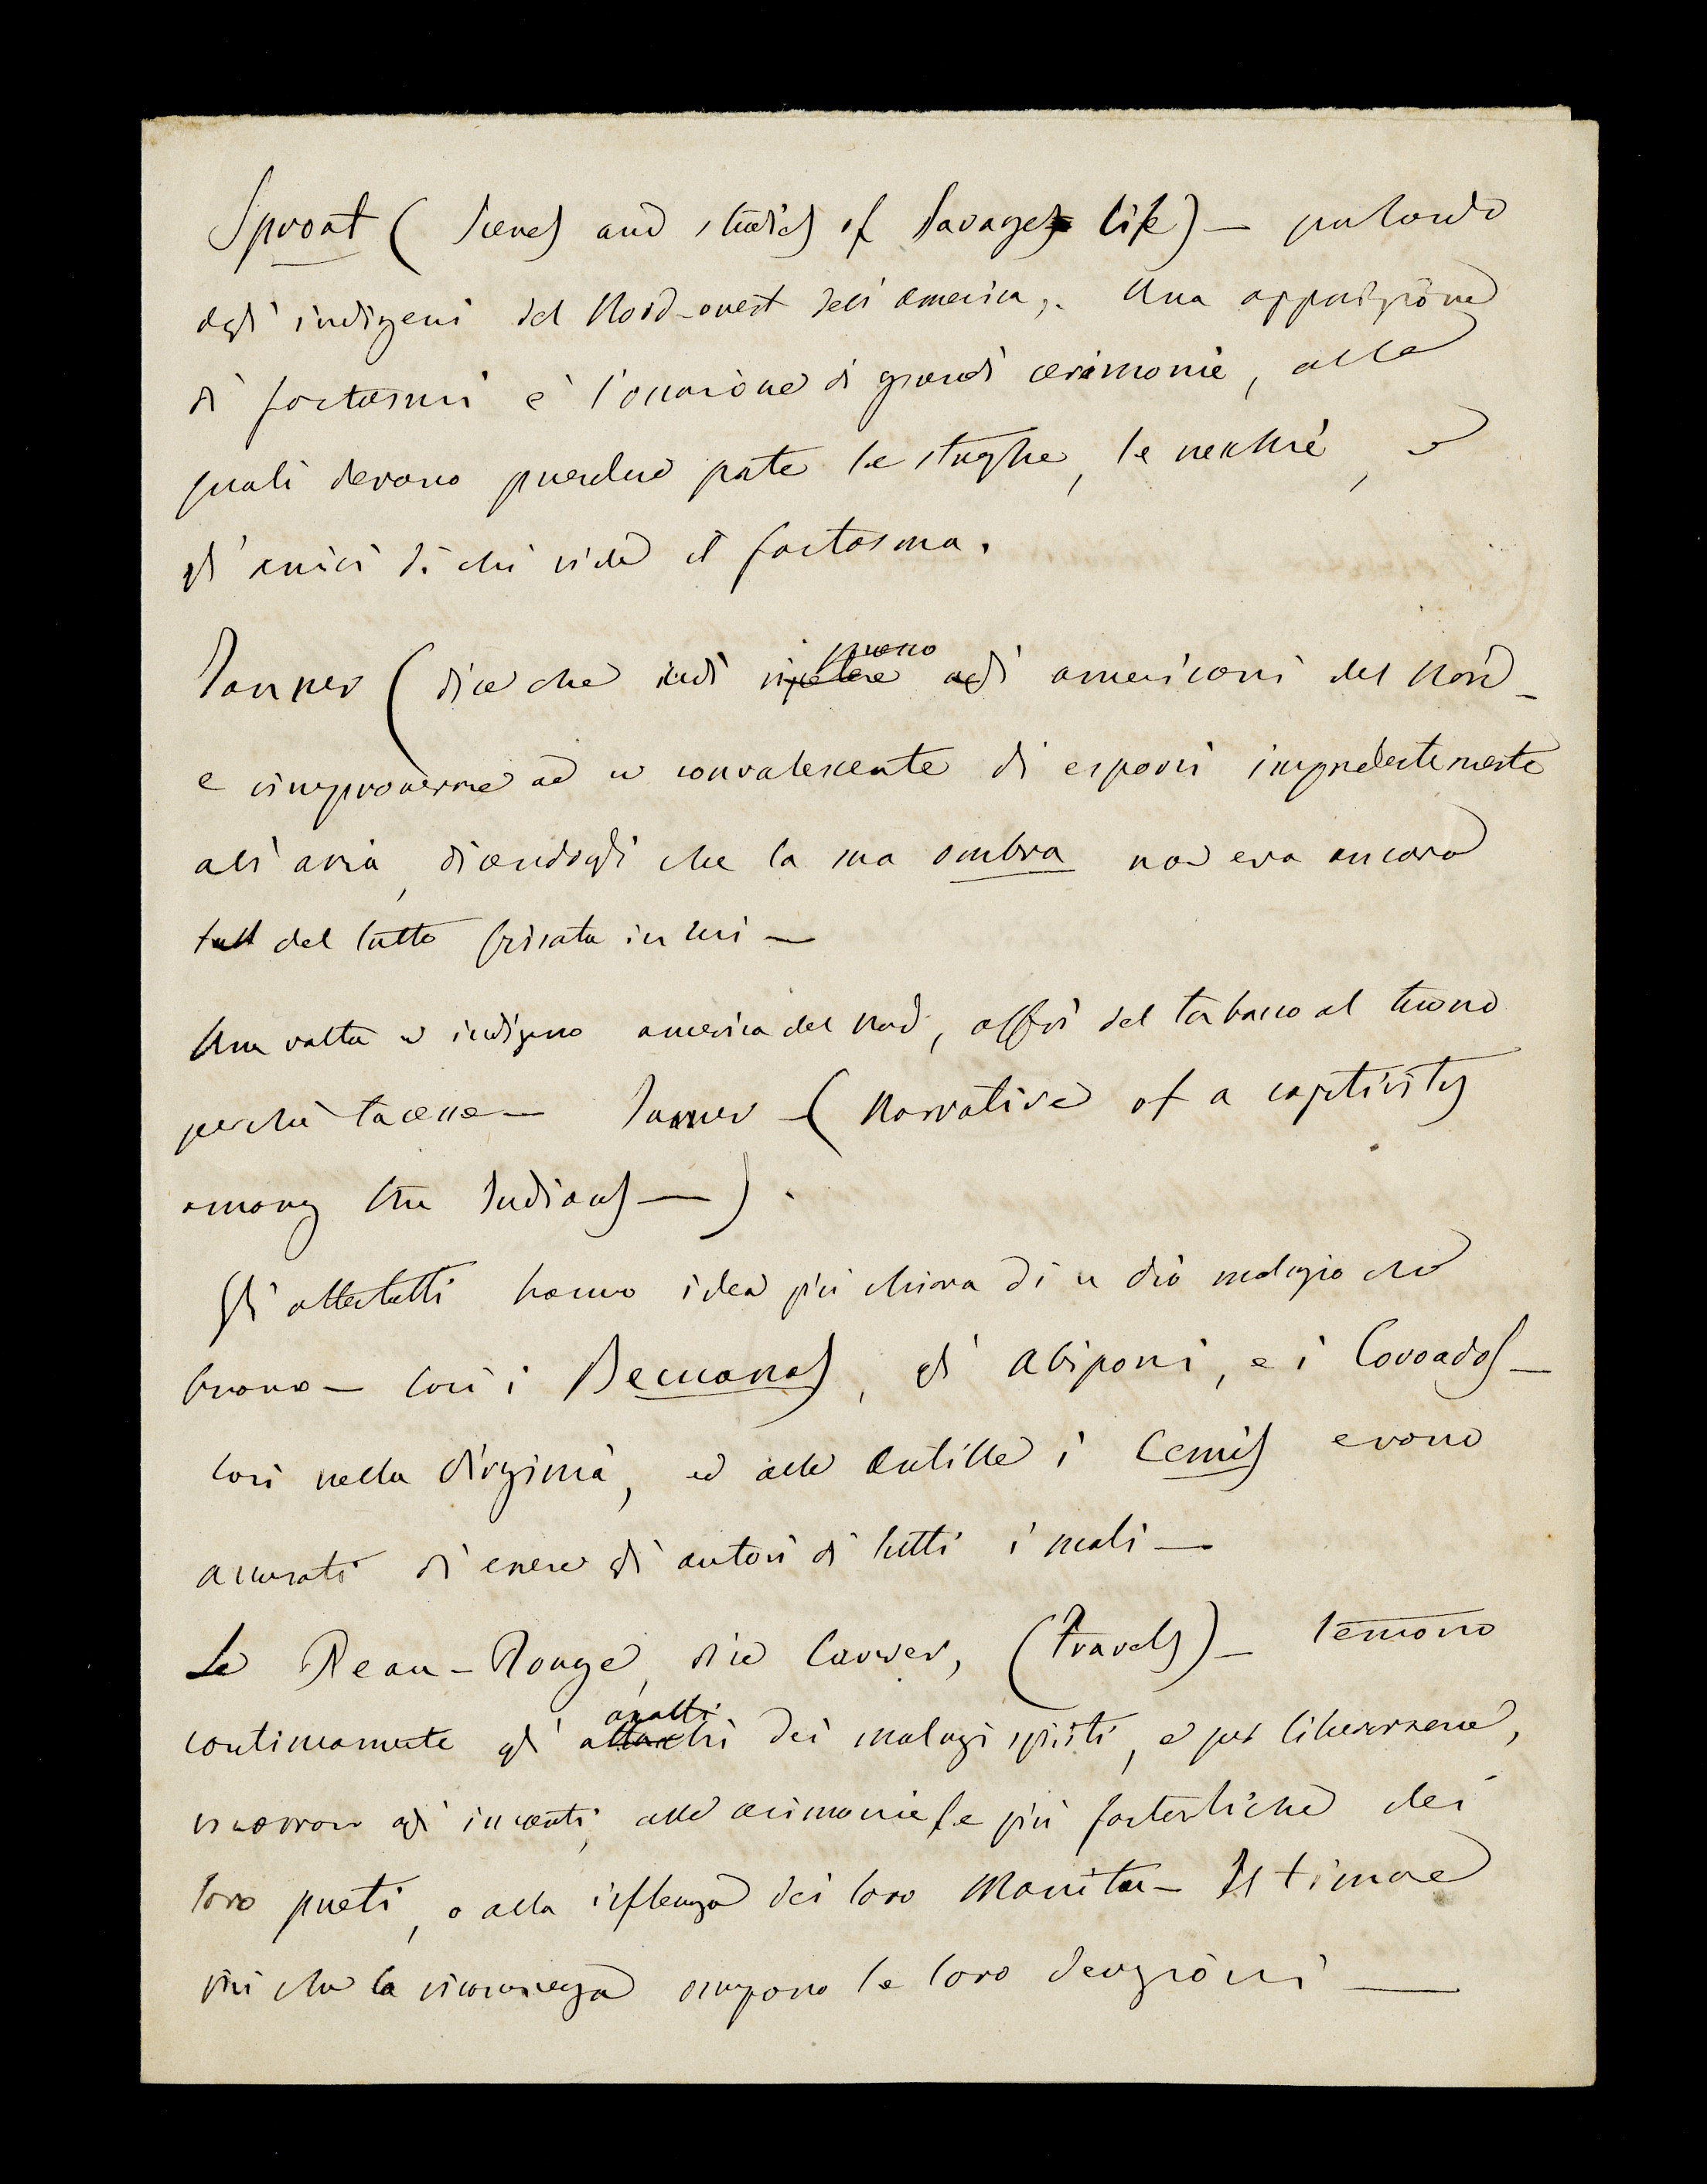 Sproat (Scenes and studies of Savage life) — parlando
degli indigeni del Nord-ouest dell'america,. Una apparizione
di fantasmi è l'occasione di grandi cerimonie, alle
quali devono prendere parte le streghe, le vecchie, e
gli amici di chi vide il fantasma.
Tanner (dice che udì un americani del Nord-
e rimproverare ad un convalescente di esporsi imprudentemente
all'aria, dicendogli che la sua ombra non era ancora
del tutto fissata in lui —
Una volta un indigeno america del Nord, offrì del tabacco al tuono
perchè tacesse — Tanner — (Narrative of a captivity
among the Indians — ).
Gli ottentotti hanno idea più chiara di un dio malvagio che
buono — così i Becuanas, gli Abiponi, e i Coroados —
così nella Virginia, ed alle Antille i Cemis erano
accusati di essere gli autori di tutti i mali —
Le Peau-Rouge, dice Carver, (Travels) — temono
continuamente gli assalti dei malvagi spiriti, e per liberarsene,
ricorrono agli incanti, alle cerimonie le più fantastiche dei
loro preti, o alla influenza dei loro Manitu — Il timore
più che la riconoscenza le loro devozioni —